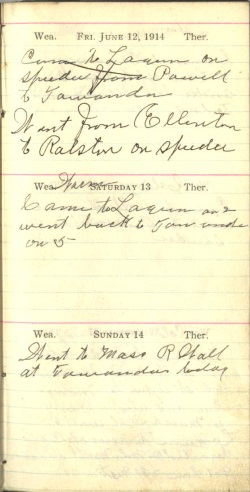 Wea. FRI. JUNE 12, 1914 Ther.
Came to Laquin on
speeder from Powell
to Towanda
Went from Ellenton
to Ralston on speeder
Wea. Warm SATURDAY 13 Ther.
Came to Laquin and
went back to Towanda
on 5
Wea. SUNDAY 14 Ther.
Went to Mass R Hall
at Towanda today